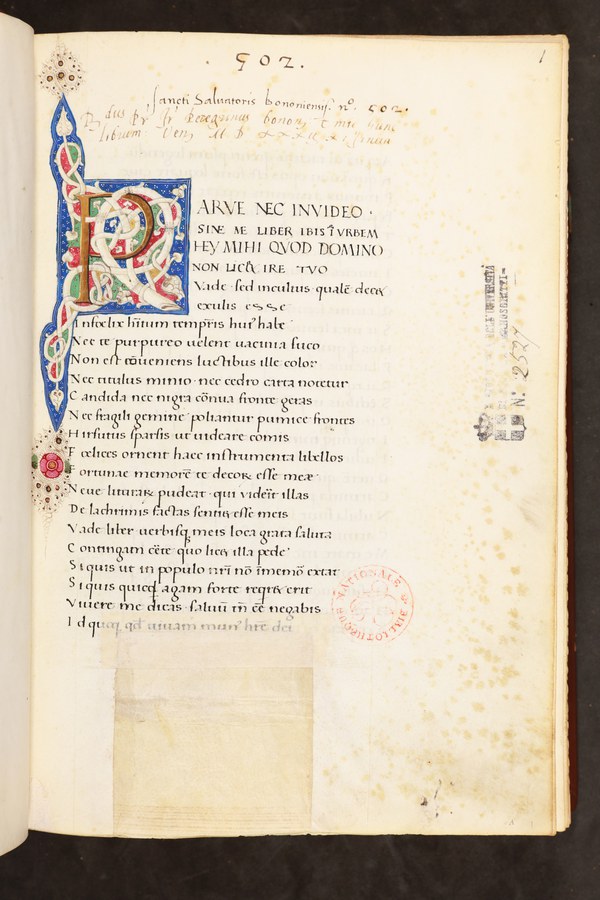 502.
1
Sancti Salvatoris bononiensis nº. 502.
PARVE NEC INVIDEO ·
SINE ME LIBER IBIS T VRBEM
HEY MIHI QVOD DOMINO
NON LICET IRE TVO
Vade · sed incultus · qualē decet
exulis esse
Infoelix hītum temp̄ris hui' habe
Nec te purpureo velent vacinia fuco
Non est cōveniens luctibus ille color
Nec titulus minio · nec cedro carta notetur
Candida nec nigra cōnua fronte geras
Nec fragili gemine poliantur pumice frontes
Hirsutus sparsis ut videare comis
Foelices ornent haec instrumenta libellos
Fortunae memorē te decet esse meae
Neve liturarum pudeat · qui viderit illas
De lachrimis factas sentiet esse meis
Vade liber verbisq meis loca grata saluta
Contingam certe quo licet illa pede
Siquis ut in populo nr̄i nō īmemor extat
Siquis quicq agam forte reqret erit
Vivere me dicas · salvū tn̄ ee negabis
Id quoq qd vivam mun' hr̄e dei
Nº. 2527